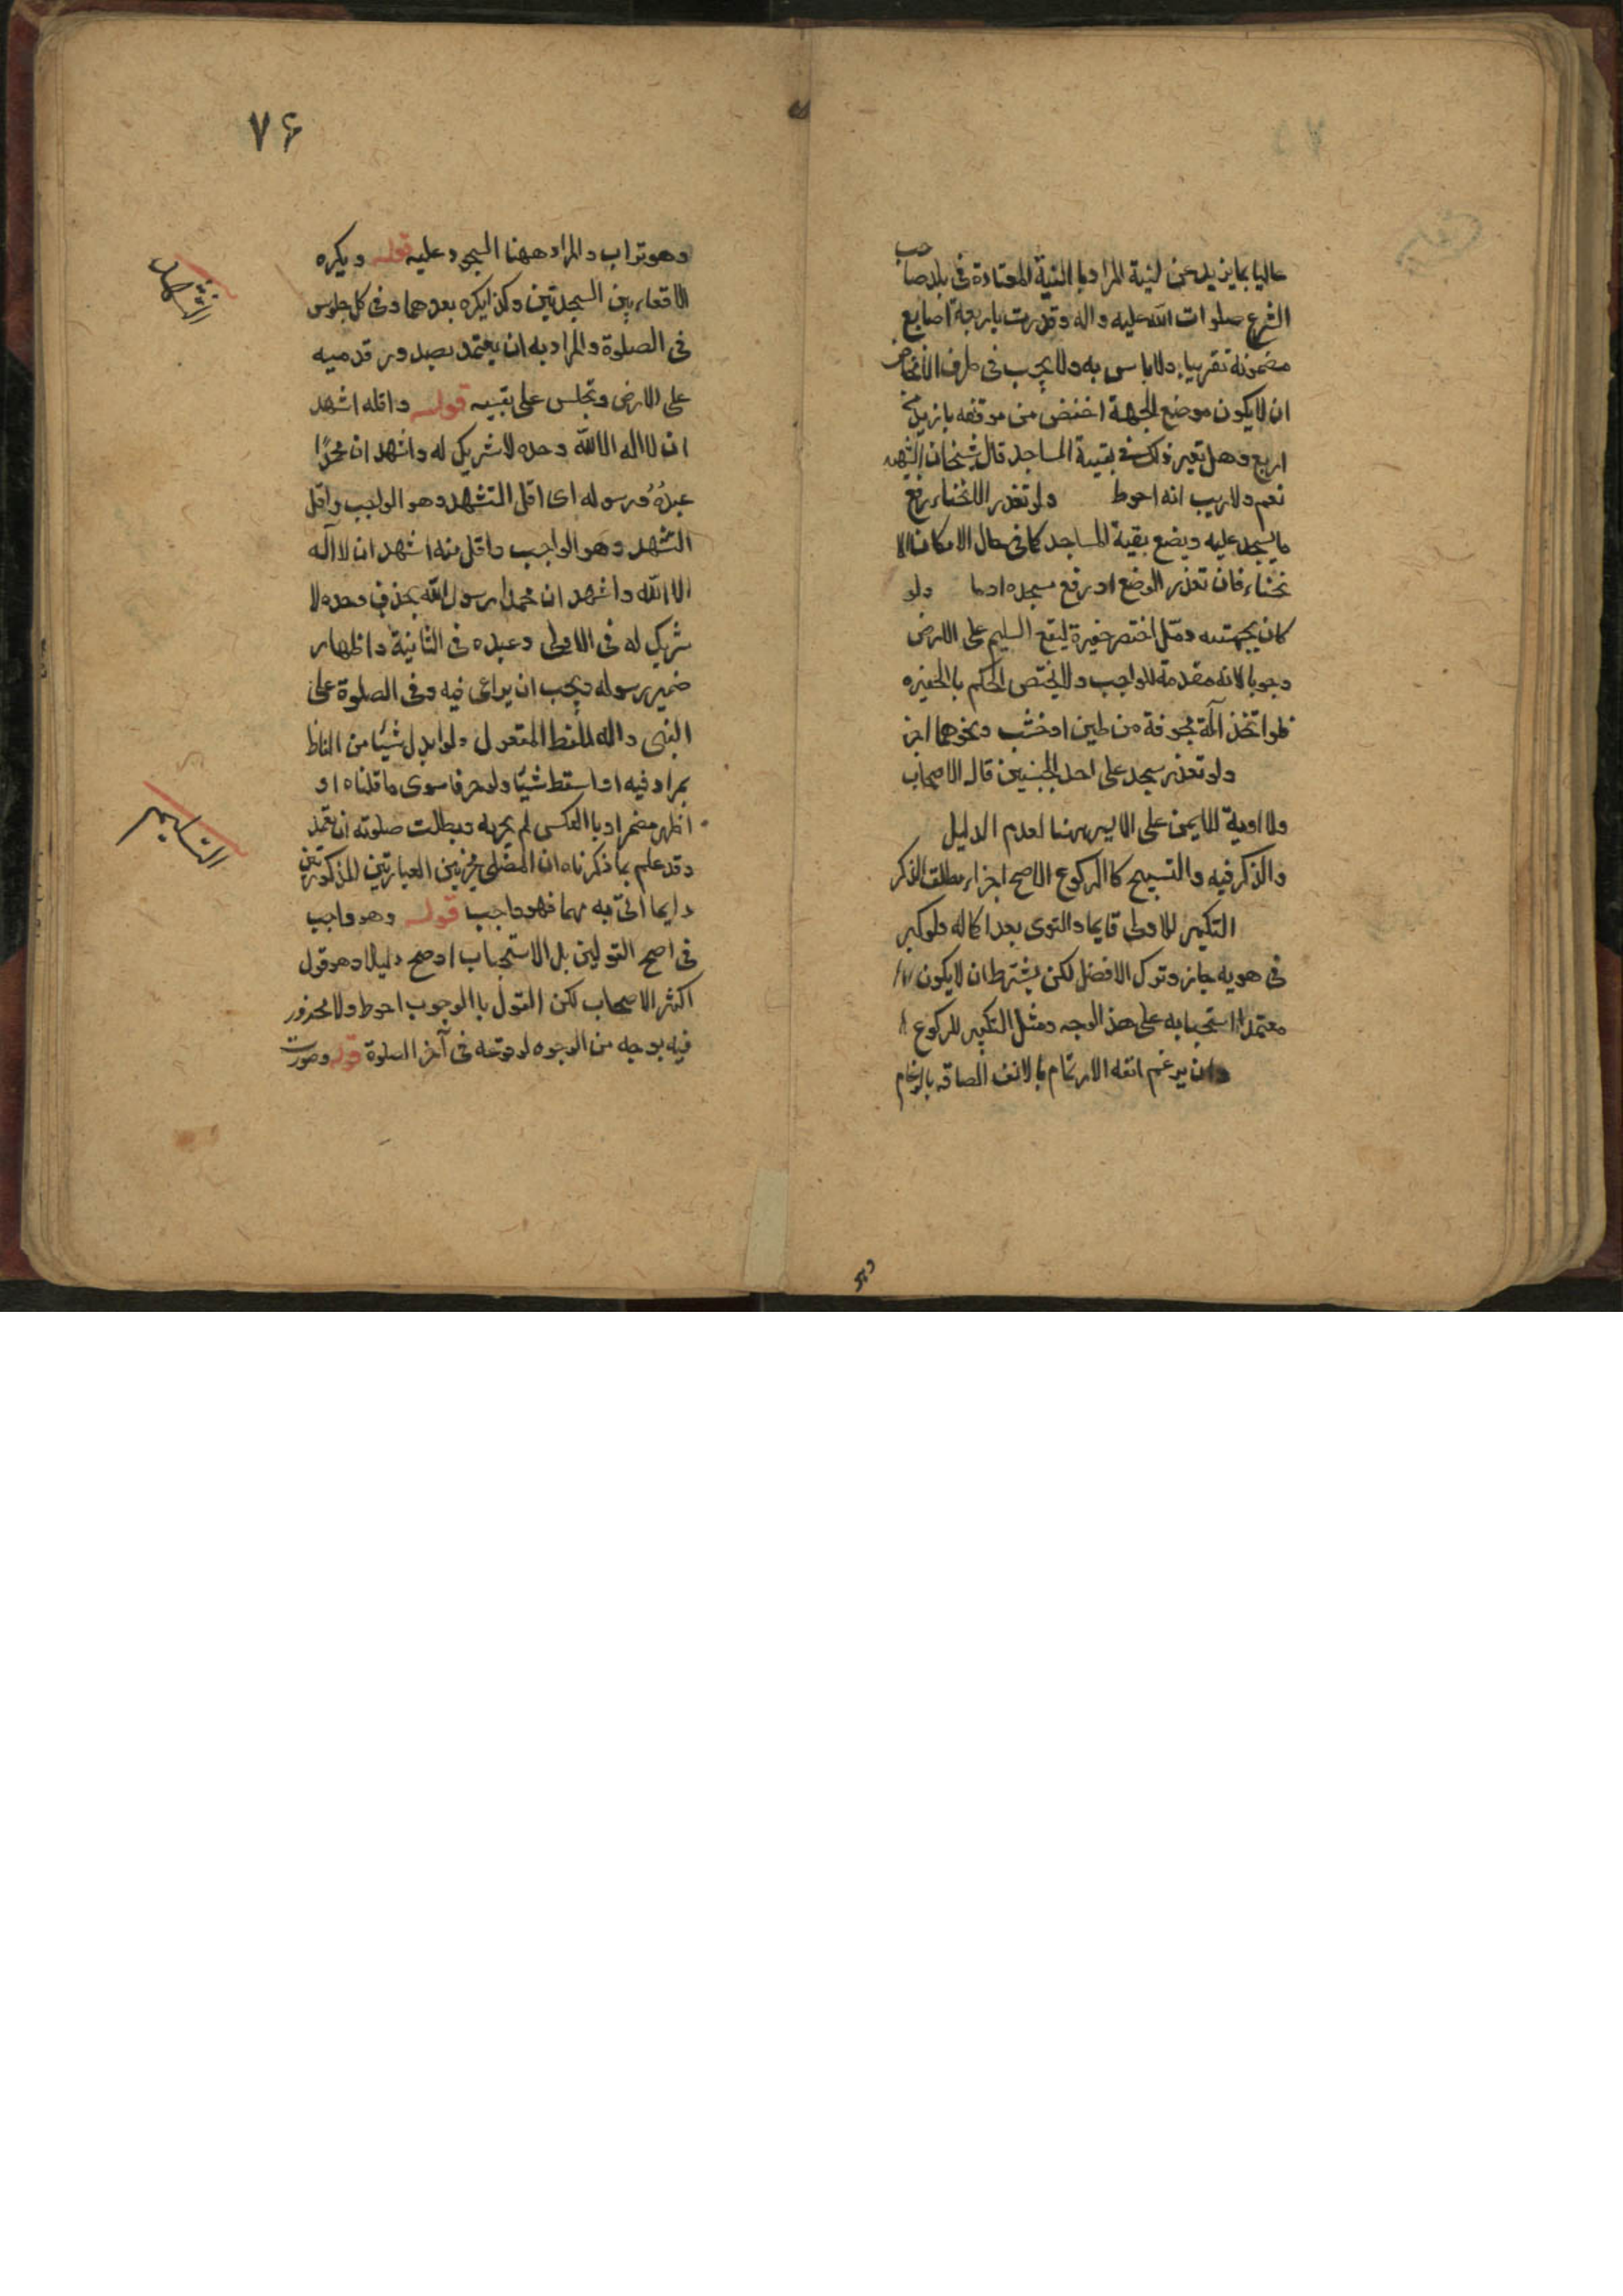 عاليا بما يزيد عن لبنة المراد با اللبنة المعتادة فى بلد صاحب
الشرع صلوات الله عليه واله وقدرت باربعة اصابع
مضمونة تقريبا ولا باس به ولا يجب فى طرف الانخفاض
ان لا يكون موضع الجبهة اخفض من موقفه بازيد من
اربع وهل يعتبر ذلك فى بقية المساجد قال شيخنا الشهيد
نعم ولا ريب انه احوط ولو تعذر الانحناء رفع
ما يسجد عليه ويضع بقية المساجد كما فى حال الامكان الا
نحناء فان تعذر الوضع او رفع مسجده اوما ولو
كان بجبهته دمّل احتفر حفيرة ليقع السليم على الارض
وجوبا لانه مقدمة للواجب ولا يختص الحكم با الحفيره
فلوا تخذ آلة مجوفة من طين او خشب ونحوهما اجز
ولو تعذر سجد على احد الجبينين قال الاصحاب
ولا اولوية للايمن على الايسر هنا لعدم الدليل
والذكر فيه والتسبيح كا الركوع الاصح اجزاء مطلق الذكر
التكبير للاولى قايما والهوى بعد اكماله فلو كبر
فى هويه جاز وترك الافضل لكن يشترط ان لا يكون
معتمدا استحبابه على هذ الوجه ومثل التكبير للركوع
وان يرغم انفه الارغام بالانف الصاقه بالرغام
وهو
٧۶
وهو تراب والمراد ههنا السجود عليه قوله ويكره
الاقعاء بين السجدتين وكذا يكره بعدهما وفى كل جلوس
فى الصلوة والمراد به ان يعتمد بصدور قدميه
على الارض ويجلس على عقبيه قوله واقله اشهد
ان لا اله الا الله وحده لا شريك له واشهد ان محمدًا
عبدهُ ورسوله اى اقل التشهد وهو الواجب واقل
التشهد وهو الواجب واقل منه اشهد ان لا اله
الا الله واشهد ان محمدا رسول الله بحذف وحده لا
شريك له فى الاولى وعبده فى الثانية واظهار
ضمير رسوله ويجب ان يراعى فيه وفى الصلوة على
النبى واله اللفظ المنقول ولو ابدل شيئا من الفاظ
بمرادفيه او اسقط شيئا ولو حرفا سوى ما قلناه او
اظهر مضمرا وبا العكس لم يجزيه وبطلت صلوته ان تعمد
وقد علم بما ذكرناه ان المصلى مخير بين العبارتين المذكورتين
دايما اتى به مهما فهو واجب قوله وهو واجب
فى اصح القولين بل الاستحباب اوضح دليلا وهو قول
اكثر الاصحاب لكن القول با الوجوب احوط ولا محذور
فيه بوجه من الوجوه لوقوعه فى آخر الصلوة قوله وصورت
التشهد
التسليم